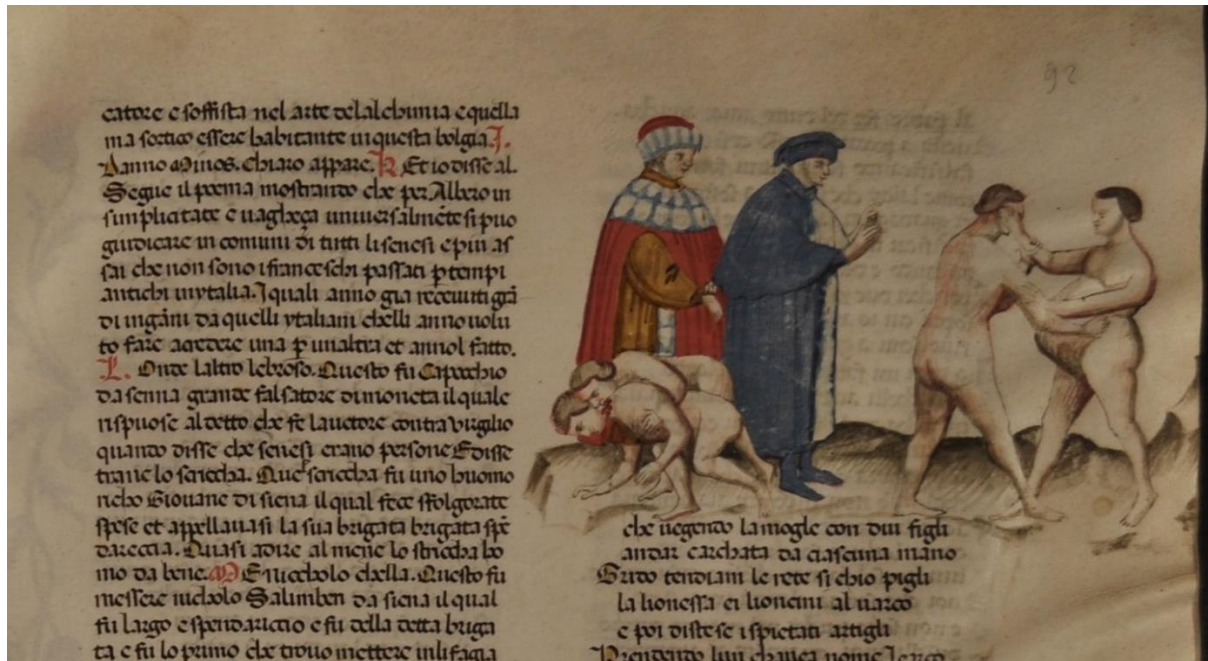 catore e soffista nel arte delalchimia e quella
ma sortio essere habitante in questa bolgia. I.
Danno Minos. Chiaro appare. K. Et io disse al.
Segue il poema mostrando che per Albero in
simplicitate e vagheça universalmēte si puo
giudicare in comuni di tutti li senesi e piu as
sai che non sono i franceschi passati p tempi
antichi in ytalia. I quali anno gia receuuti grā
di ingāni da quelli ytaliani chelli anno uolu
to fare credere una p unaltra et annol fatto.
L. Onde laltro lebroso. Questo fu Capocchio
da senna grande falsatore di moneta il quale
rispuose al detto che fe lauctore contra virgilio
quando disse che senesi erano persone E disse
trane lo striccha. Que striccha fu uno huomo
richo Giouane di siena il qual fece sfolgorate
spese et appellauasi la sua brigata brigata spē
dareccia. Quasi adire al mene lo striccha ho
mo da bene. M E niccholo chella. Questo fu
messere nicholo Salimben da siena il qual
fu largo e spendariccio e fu della detta briga
ta e fu lo primo che trouo mettere inli fagia
92
che uegendo la mogle con dui figli
andar carchata da ciascuna mano
Grido tendiam le rete si chio pigli
la lionessa ei lioncini al uarco
e poi distese i spietati artigli
Prendendo lun chauea nome Learco